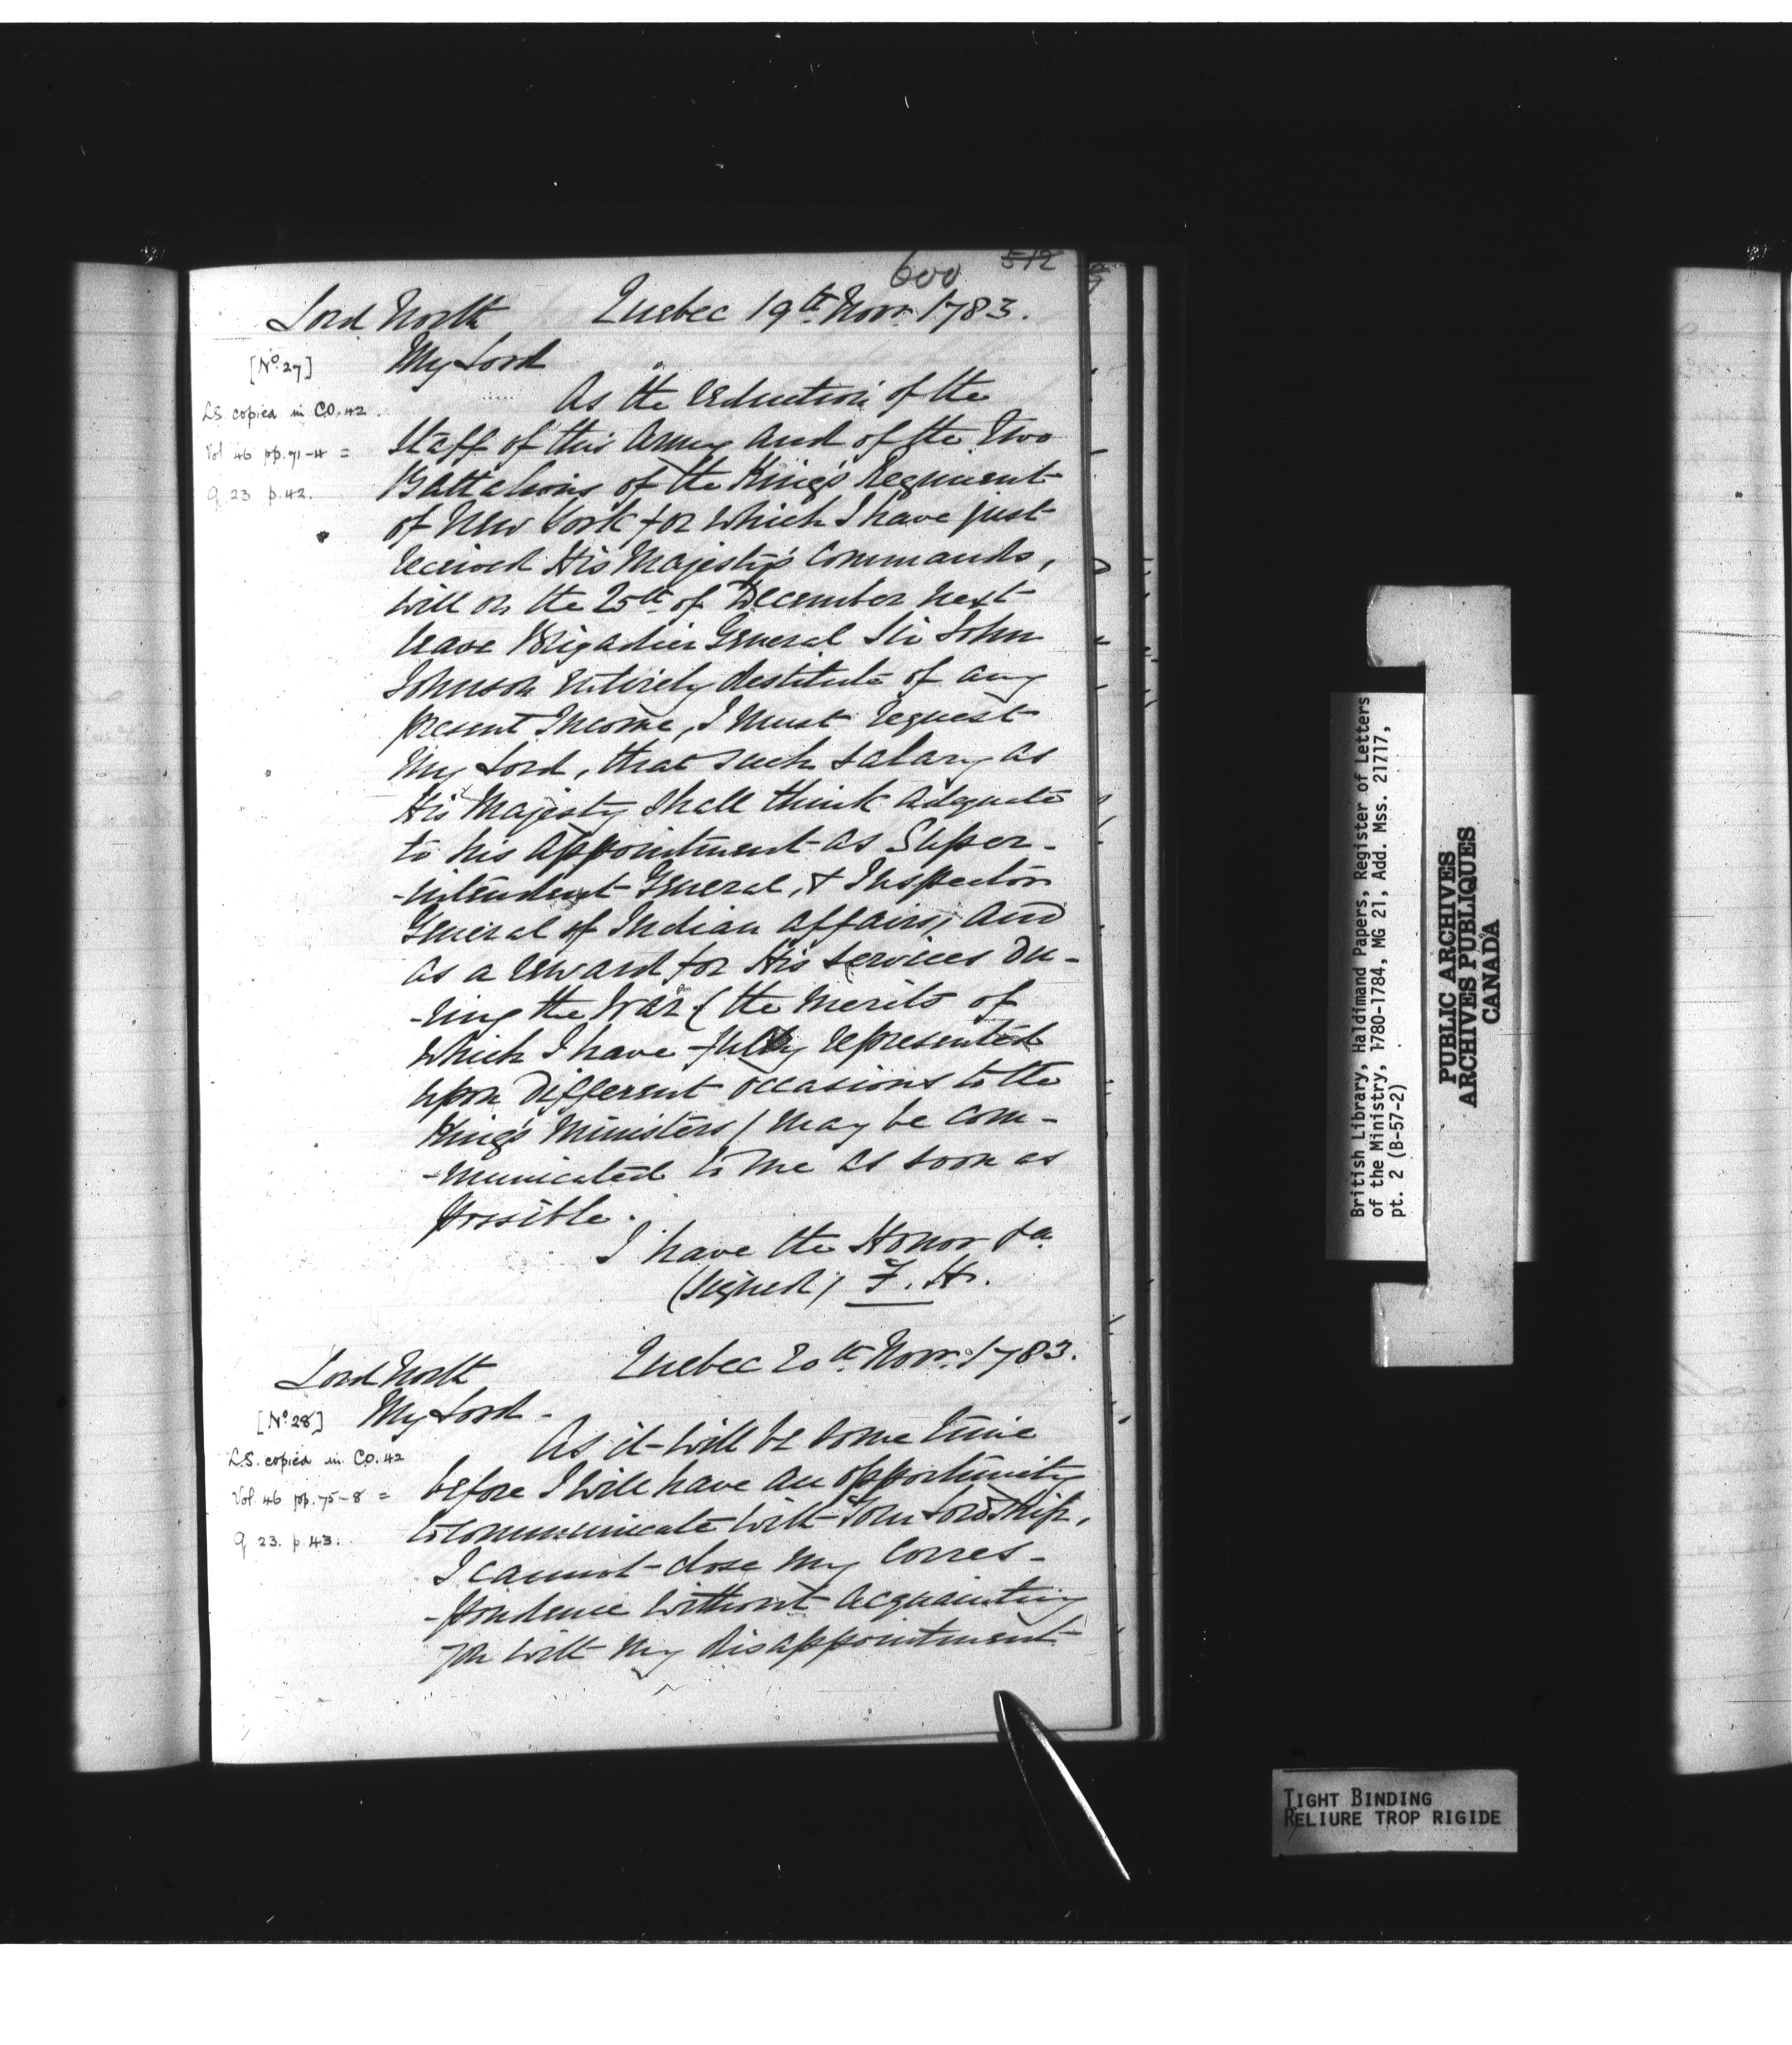 600 512
Lord North Quebec 19th. Novr. 1783.
[No. 27] My Lord
As the reduction of the
L.S. copied in C.O. 42.
Staff of this Army and of the Two
Vol 46 pp. 71-4 =
Battalions of the King's Regiment
Q 23 p. 42.
of New York for which I have just
received His Majesty's Commands,
will on the 25th of December next
leave Brigadier General Sir John
Johnson entirely destitute of any
present Income, I must request
My Lord, that such salary as
His Majesty shall think adequate
to his appointment as Super-
-intendent General, & Inspector
General of Indian affairs, and
as a reward for His services du-
-ring the War (the merits of
which I have fully represented
upon different occasions to the
King's Ministers) may be com-
-municated to me as soon as
possible.
I have the Honor &a.
(signed) F. H.
Lord North Quebec 20th. Novr. 1783.
[No. 28] My Lord -
As it will be some time
L.S. copied in C.O. 42
before I will have an opportunity
Vol. 46 pp. 75-8 =
to communicate with Your Lordship,
Q 23. p 43.
I cannot close my Corres-
-pondence without acquainting
you with my disappointment
British Library, Haldimand Papers, Register of Letters
of the Ministry, 1780-1784, MG 21, Add. Mss. 21717,
pt. 2 (B-57-2)
PUBLIC ARCHIVES
ARCHIVES PUBLIQUES
CANADA
TIGHT BINDING
RELIURE TROP RIGIDE